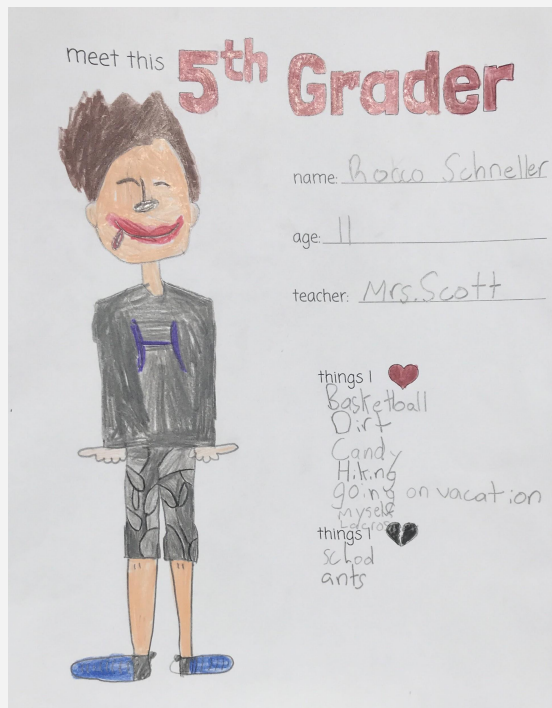 meet this 5th Grader
name: Rocco Schneller
age: 11
teacher: Mrs. Scott
things I
Basketball
Dirt
Candy
Hiking
going on vacation
myself
Lacross
things I
school
ants
H